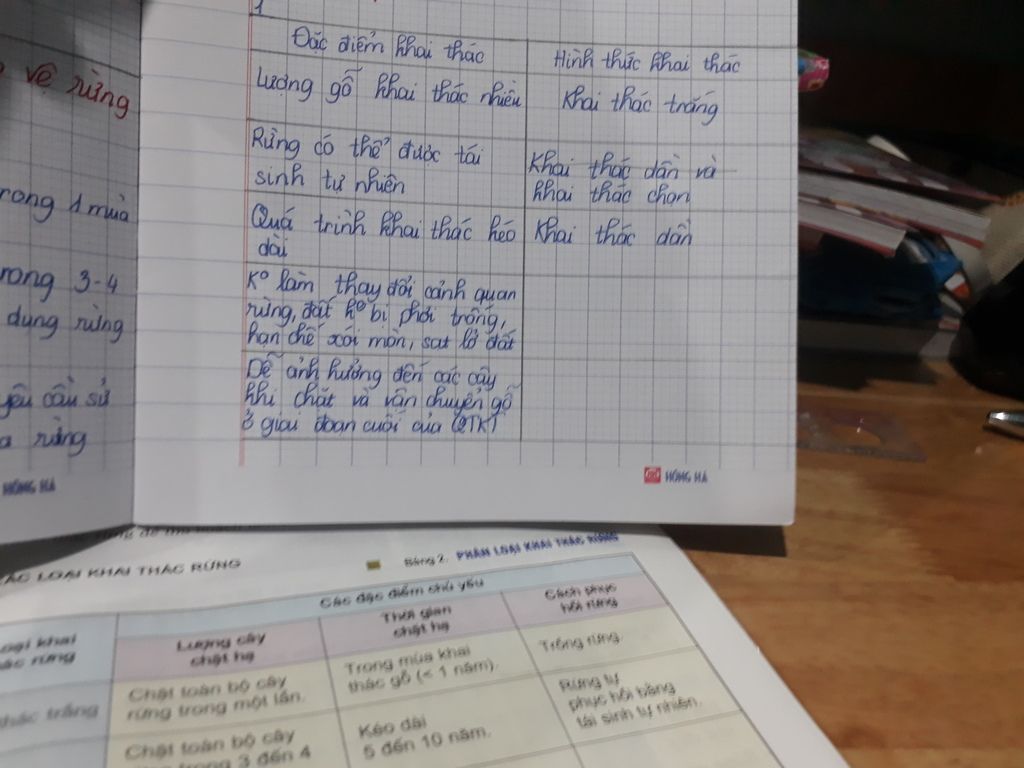 1
Đặc điểm khai thác
Hình thức khai thác
Lượng gỗ khai thác nhiều
Khai thác trắng
Rừng có thể được tái
sinh tự nhiên
Khai thác dần và
khai thác chọn
Quá trình khai thác kéo
dài
Khai thác dần
K° làm thay đổi cảnh quan
rừng, đất k° bị phơi trống,
hạn chế xói mòn, sạt lở đất
Dễ ảnh hưởng đến các cây
khi chặt và vận chuyển gỗ
ở giai đoạn cuối của QTKT
vệ rừng
rong 1 mùa
rong 3-4
dụng rừng
yêu cầu sử
rừng
HỒNG HÀ
HỒNG HÀ
ÁC LOẠI KHAI THÁC RỪNG
Bảng 2. PHÂN LOẠI KHAI THÁC RỪNG
oại khai
hác rừng
Các đặc điểm chủ yếu
Lượng cây
chặt hạ
Thời gian
chặt hạ
Cách phục
hồi rừng
thác trắng
Chặt toàn bộ cây
rừng trong một lần.
Trong mùa khai
thác gỗ (< 1 năm).
Trồng rừng.
Chặt toàn bộ cây
trong 3 đến 4
Kéo dài
5 đến 10 năm.
Rừng tự
phục hồi bằng
tái sinh tự nhiên.